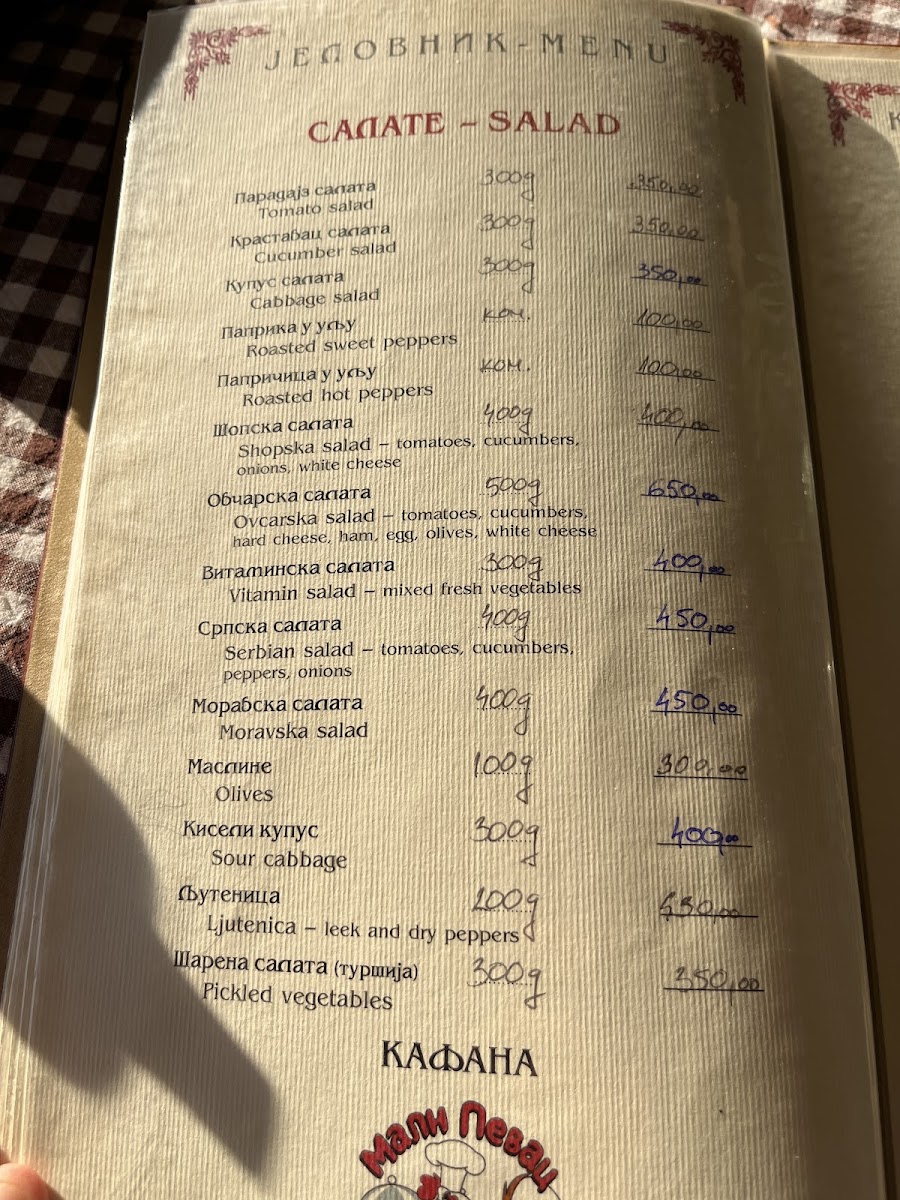 ЈЕЛОВНИК - MENU
САЛАТЕ - SALAD
Парадајз салата 300g 350,00
Tomato salad
Крастабац салата 300g 350,00
Cucumber salad
Купус салата 300g 350,00
Cabbage salad
Паприка у уљу ком. 100,00
Roasted sweet peppers
Папричица у уљу ком. 100,00
Roasted hot peppers
Шопска салата 400g 400,00
Shopska salad – tomatoes, cucumbers,
onions, white cheese
Обчарска салата 500g 650,00
Ovcarska salad – tomatoes, cucumbers,
hard cheese, ham, egg, olives, white cheese
Витаминска салата 300g 400,00
Vitamin salad – mixed fresh vegetables
Српска салата 400g 450,00
Serbian salad – tomatoes, cucumbers,
peppers, onions
Морабска салата 400g 450,00
Moravska salad
Маслине 100g 300,00
Olives
Кисели купус 300g 400,00
Sour cabbage
Љутеница 200g
Ljutenica – leek and dry peppers
Шарена салата (туршија) 300g 350,00
Pickled vegetables
КАФАНА
Мали Певац